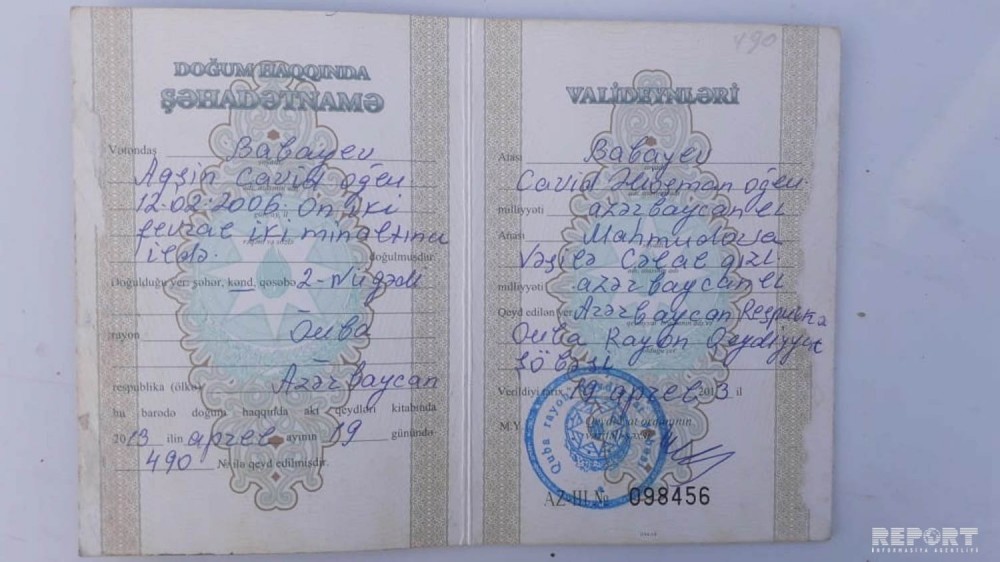 490
DOĞUM HAQQINDA
ŞƏHADƏTNAMƏ
Vətəndaş Babayev
Aqşin Cavid oğlu
12.02.2006. On iki
fevral iki min altıncı
ildə. doğulmuşdur.
Doğulduğu yer: şəhər, kənd, qəsəbə 2-Nügədi
rayon Quba
respublika (ölkə) Azərbaycan
bu barədə doğum haqqında akt qeydləri kitabında
2013 ilin aprel ayının 19 gününde
490 № ilə qeyd edilmişdir.
VALİDEYNLƏRİ
Atası Babayev
Cavid oğlu
milliyyəti azərbaycanlı
Anası Mahmudova
Vəsilə Cəlal qızı
milliyyəti azərbaycanlı
Qeyd edilən yer Azərbaycan Respublika
Quba Rayon Qeydiyyat
şöbəsi
Verildiyi tarix "19" aprel 2013 il
M.Y.
Quba rayon
AZ-III № 098456
REPORT
İNFORMASİYA AGENTLİYİ